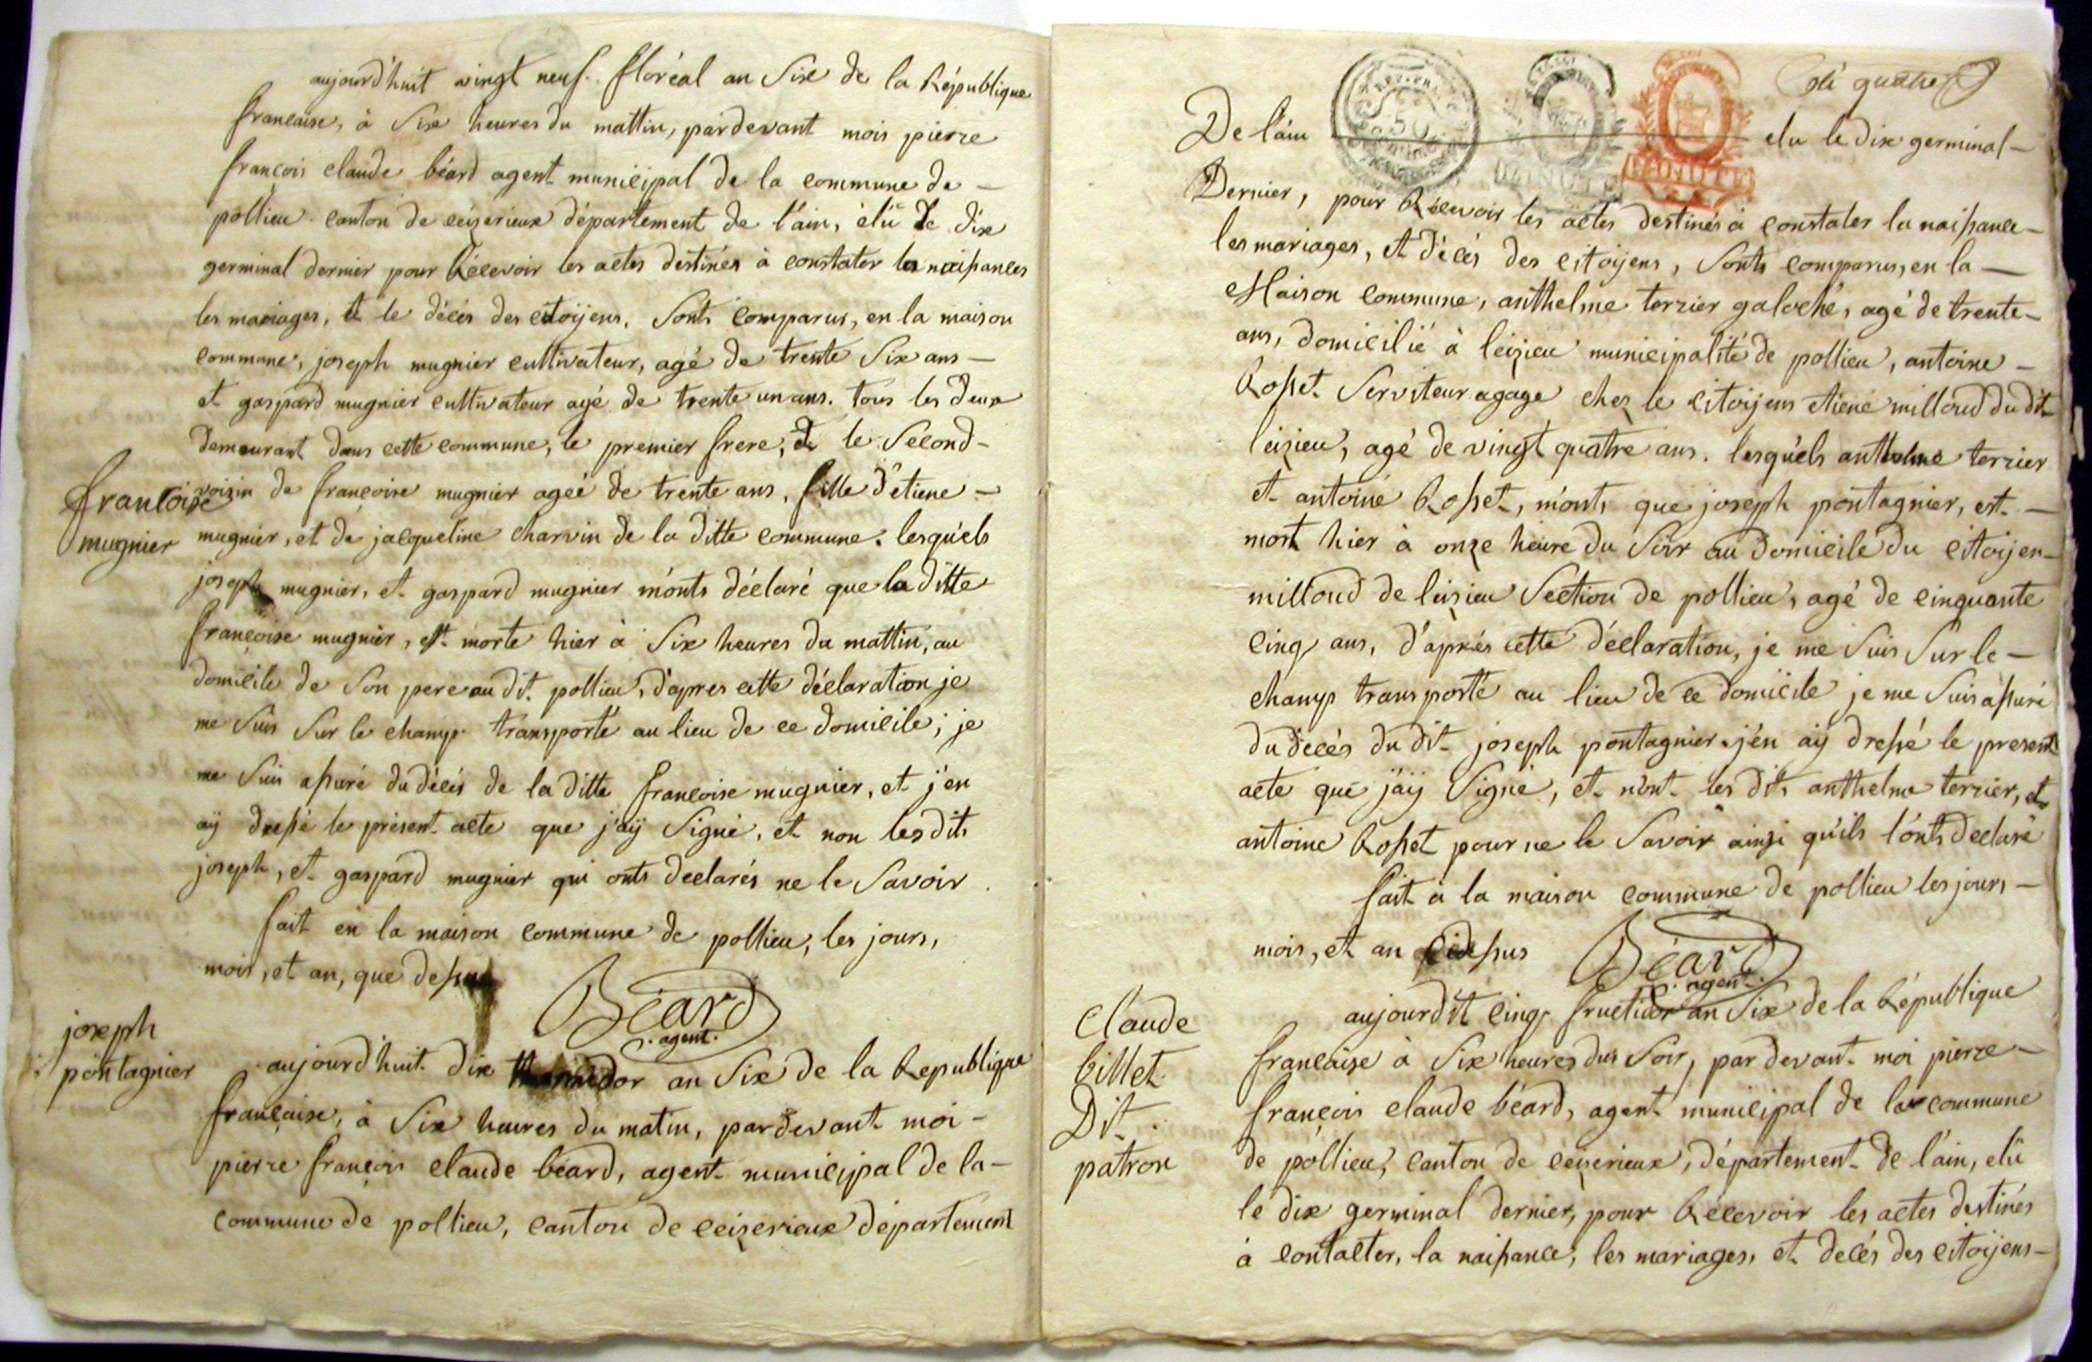 aujourd'huit vingt neuf floréal an Six de la République
française, à Six heures du mattin, pardevant mois pierre
françois claude béard agent municipal de la commune de -
pollieu canton de ceizerieux département de l'ain, élu le dix
germinal dernier pour Récevoir les actes destinés à constater la naissances
les mariages, et le décés des citoijens, Sonts comparus, en la maison
commune, joseph mugnier cultivateur, agé de trente Six ans -
et gaspard mugnier cultivateur agé de trente un ans. tous les deux
demeurant dans cette commune, le premier frere, et le Second -
françoise
mugnier
voizin de françoise mugnier ageé de trente ans, fille d'etiene -
mugnier, et de jacqueline charvin de la ditte commune. lesquels
joseph mugnier, et gaspard mugnier m'onts déclaré que la ditte
françoise mugnier, est morte hier à Six heures du mattin, au
domicile de Son pere au dit pollieu, d'apres cette déclaration je
me Suis Sur le champ transporté au lieu de ce domicile; je
me Suis assuré du décés de la ditte françoise mugnier, et j'en
aÿ dressé le présent acte que j'aÿ Signé, et non les dits
joseph, et gaspard mugnier qui onts declarés ne le Savoir.
fait en la maison commune de pollieu, les jours,
mois, et an, que dessus
Béard
agent.
joseph
pontagnier
aujourd'huit dix thermidor an Six de la Republique
française, à Six heures du matin, pardevant moi -
pierre françois claude béard, agent municipal de la -
commune de pollieu, canton de ceizerieux département
quatre
De l'ain elu le dix germinal -
50
MINUTE
MINUTE
Dernier, pour Récevoir les actes destinés à constater la naissance -
les mariages, et décés des citoijens, Sonts comparus, en la -
Maison commune, anthelme terrier galoché, agé de trente -
ans, domicilié à leizieu municipalité de pollieu, antoine -
Rosset Serviteur agage chez le citoijens etiene milloud du dit
leizieu, agé de vingt quatre ans. lesquels anthelme terrier
et antoine Rosset, m'onts que joseph pontagnier, est -
mort hier à onze heure du Soir au domicile du citoijen -
milloud de leizieu Section de pollieu, agé de cinquante
cinq ans, d'aprés cette déclaration, je me Suis Sur le -
champ transporté au lieu de ce domicile je me Suis assuré
du decés du dit joseph pontagnier. j'en aÿ dressé le present
acte que j'aÿ Signé, et n'ont les dits anthelme terrier, et
antoine Rosset pour ne le Savoir ainsi qu'ils l'onts declaré
fait à la maison commune de pollieu les jours -
mois, et an cidessus
Béard
agent.
claude
billet
Dit
patron
aujourd'it cinq fructidor an Six de la République
française à Six heures dus Soir, par devant moi pierre -
françois claude béard, agent municipal de la commune
de pollieu, canton de ceizerieux, département de l'ain, elû
le dix germinal dernier, pour Récevoir les actes destinés
à contacter, la naissance, les mariages, et decés des citoijens -